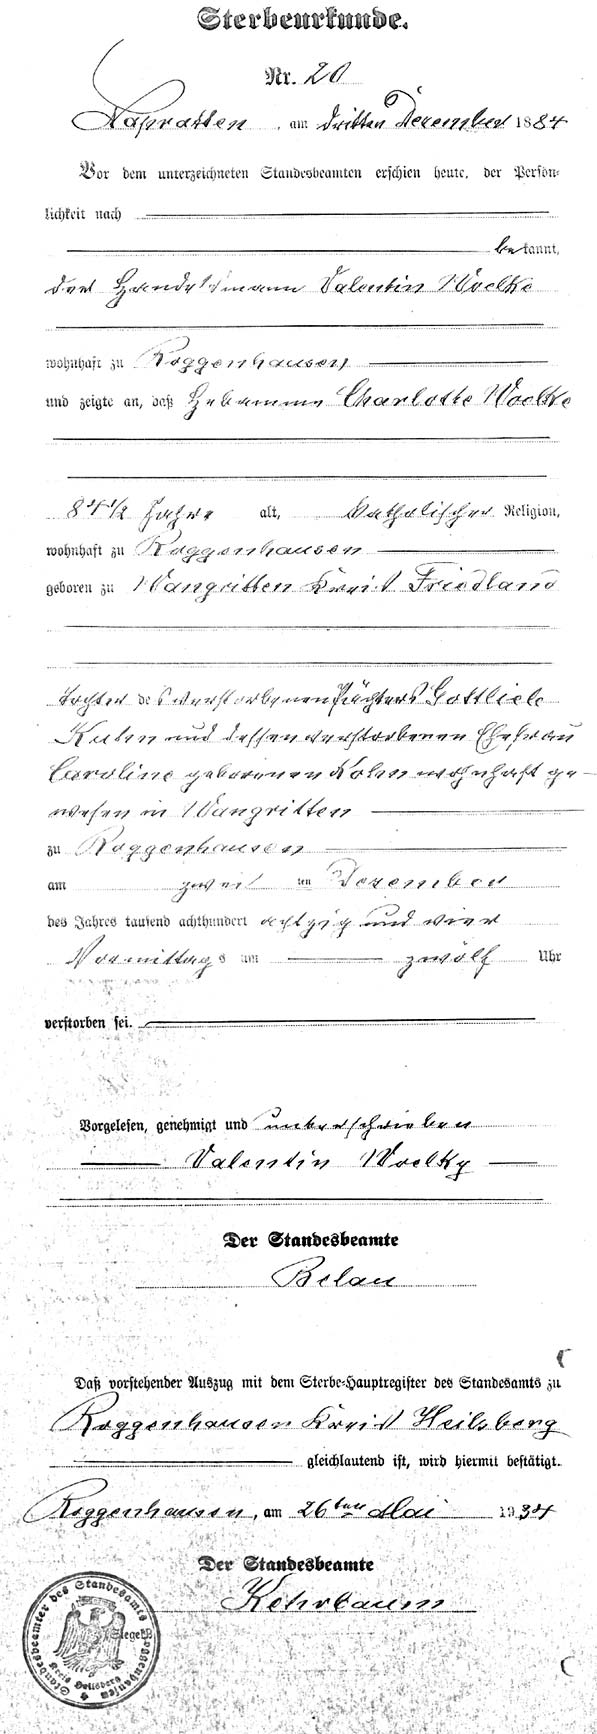 Sterbeurkunde.
Nr. 20
Napratten, am dritten Dezember 1884
Vor dem unterzeichneten Standesbeamten erschien heute, der Persön-
lichkeit nach
bekannt,
der Handelsmann Valentin Woelke
wohnhaft zu Roggenhausen
und zeigte an, daß Hebamme Charlotte Woelke
84 1/2 Jahre alt, katholischer Religion,
wohnhaft zu Roggenhausen
geboren zu Wangritten Kreis Friedland
Tochter des verstorbenen Pächters Gottlieb
Kuhn und dessen verstorbenen Ehefrau
Caroline geborenen wohnhaft ge-
wesen in Wangritten
zu Roggenhausen
am zweiten Dezember
des Jahres tausend achthundert achtzig und vier
Vormittags um zwölf Uhr
verstorben sei.
Vorgelesen, genehmigt und unterschrieben
Valentin Woelky
Der Standesbeamte
Belau
Daß vorstehender Auszug mit dem Sterbe-Hauptregister des Standesamts zu
Roggenhausen Kreis Heilsberg
gleichlautend ist, wird hiermit bestätigt.
Roggenhausen, am 26ten Mai 1934
Der Standesbeamte
Kehrbaum
Siegel
Standesbeamter des Standesamts Roggenhausen
Kreis Heilsberg